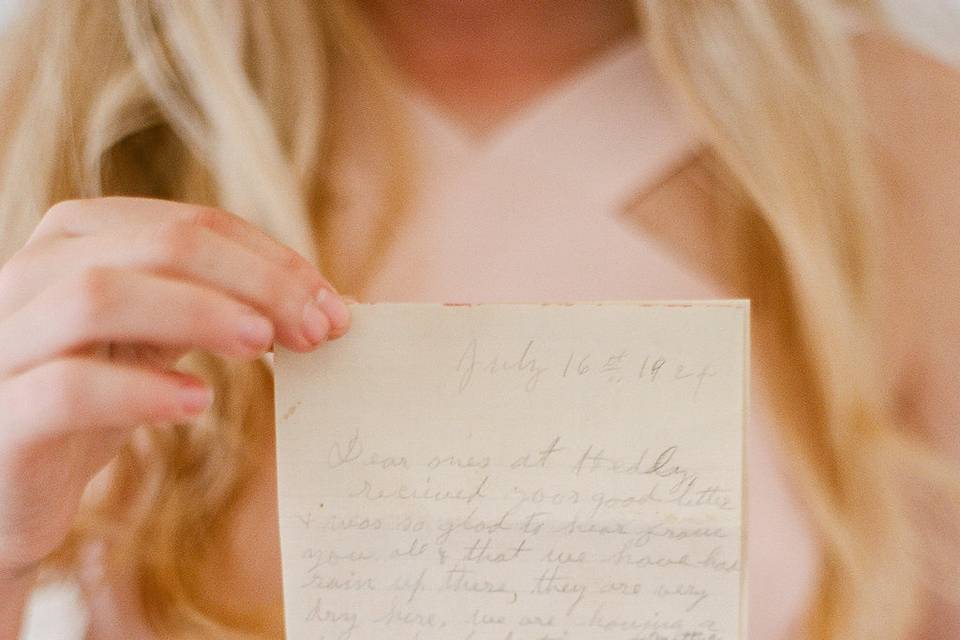 July 16th, 1924
Dear ones at Hedley,
recieved your good letter
& was so glad to hear from
you all & that we have had
rain up there, they are very
dry here, we are having a